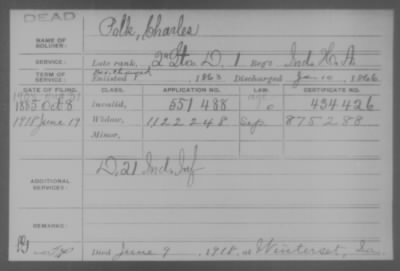 DEAD
NAME OF SOLDIER: Polk, Charles
SERVICE: Late rank, 2" Lt. D, 1 Reg't Ind. H. A.
TERM OF SERVICE: Enlisted 1863 Discharged Jan 10, 1866
DATE OF FILING. CLASS. APPLICATION NO. LAW. CERTIFICATE NO.
1885 Oct 8 Invalid, 551488 434426
1918 June 19 Widow, 1122248 Sep. 875288
Minor,
ADDITIONAL SERVICES: D, 21 Ind. Inf
REMARKS:
Died June 9, 1918, at Winterset, Ia.